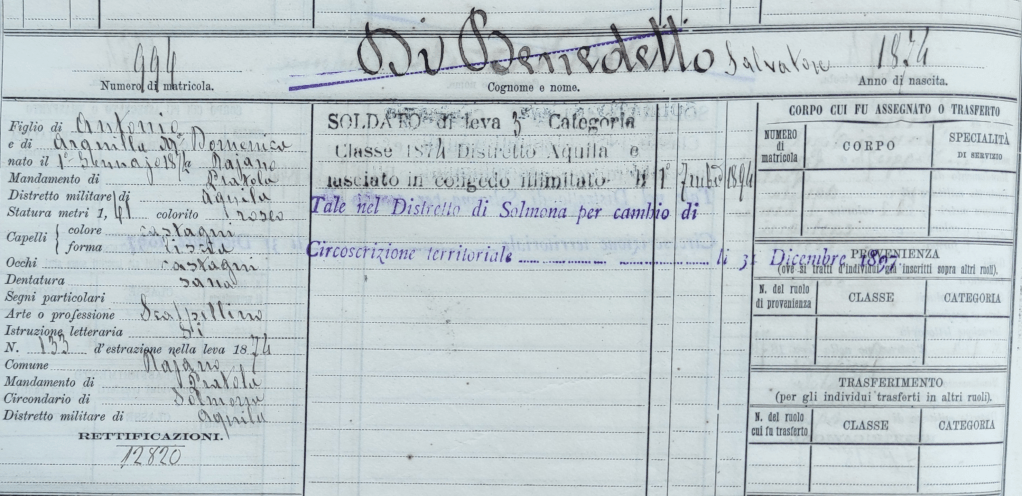 994
Numero di matricola.
Di Benedetto Salvatore
Cognome e nome.
1874
Anno di nascita.
Figlio di Antonio
e di Arquilla Mª Domenica
nato il 1º Gennajo 1874 Rajano
Mandamento di Pratola
Distretto militare di Aquila
Statura metri 1, 61 colorito roseo
Capelli { colore castagni
forma liscia
Occhi castagni
Dentatura sana
Segni particolari
Arte o professione Scarpellino
Istruzione letteraria Si
N. 133 d'estrazione nella leva 1874
Comune Rajano
Mandamento di Pratola
Circondario di Solmona
Distretto militare di Aquila
RETTIFICAZIONI.
12820
SOLDATO di leva 3ª Categoria
Classe 1874 Distretto Aquila e
lasciato in congedo illimitato li 1º 7mbre 1894
Tale nel Distretto di Solmona per cambio di
Circoscrizione territoriale li 31 Dicembre 1897
CORPO CUI FU ASSEGNATO O TRASFERTO
NUMERO di matricola
CORPO
SPECIALITÀ DI SERVIZIO
PROVENIENZA
(ove si tratti d'individui già inscritti sopra altri ruoli).
N. del ruolo di provenienza
CLASSE
CATEGORIA
TRASFERIMENTO
(per gli individui trasferti in altri ruoli).
N. del ruolo cui fu trasferto
CLASSE
CATEGORIA